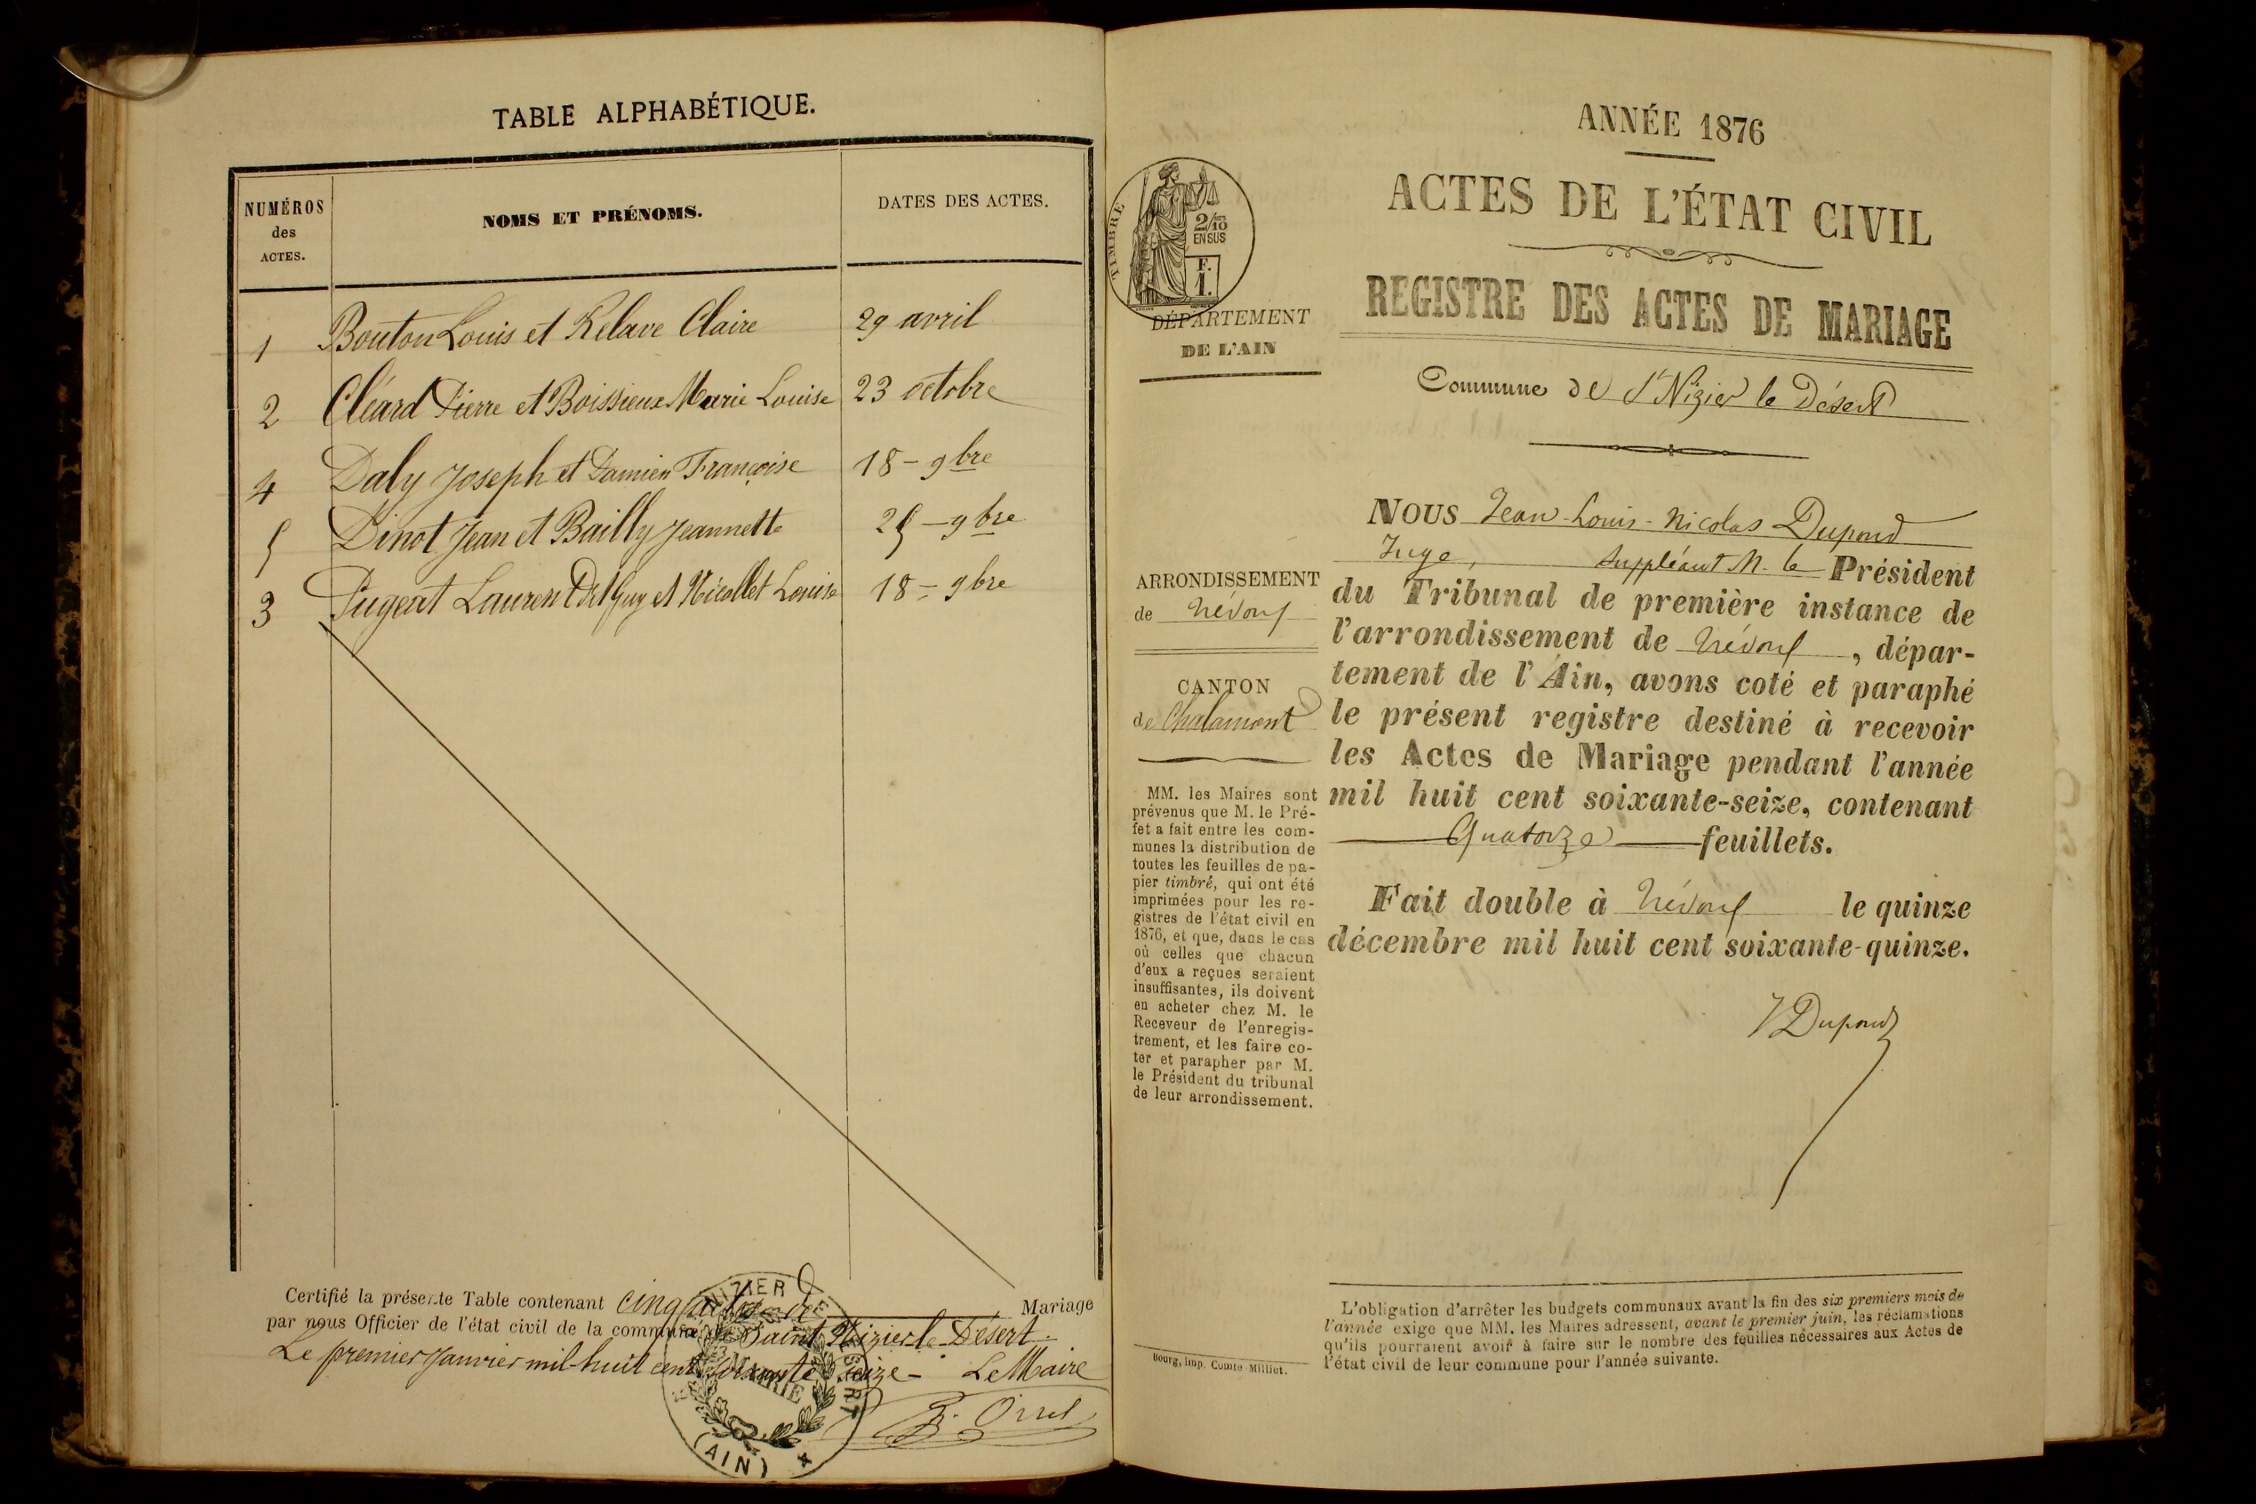 TABLE ALPHABÉTIQUE.
NUMÉROS
des
ACTES.
NOMS ET PRÉNOMS.
DATES DES ACTES.
1 Bouton Louis et Relave Claire 29 avril
2 Cléard Pierre et Boissieux Marie Louise 23 octobre
4 Daly Joseph et Damien Françoise 18 - 9bre
5 Dinot Jean et Bailly Jeannette 25 - 9bre
3 Pugeat Laurent et Nicollet Louise 18 - 9bre
Certifié la présente Table contenant cinq actes de Mariage
par nous Officier de l'état civil de la commune de Saint Nizier le Désert.
Le premier Janvier mil-huit cent soixante seize - Le Maire
NIZIER LE DÉSERT
MAIRIE
(AIN)
ANNÉE 1876
ACTES DE L'ÉTAT CIVIL
REGISTRE DES ACTES DE MARIAGE
Commune de St Nizier le Désert
TIMBRE
2/10
EN SUS
F.
1.
DÉPARTEMENT
DE L'AIN
ARRONDISSEMENT
de Trévoux
CANTON
de Chalamont
MM. les Maires sont
prévenus que M. le Pré-
fet a fait entre les com-
munes la distribution de
toutes les feuilles de pa-
pier timbré, qui ont été
imprimées pour les re-
gistres de l'état civil en
1876, et que, dans le cas
où celles que chacun
d'eux a reçues seraient
insuffisantes, ils doivent
en acheter chez M. le
Receveur de l'enregis-
trement, et les faire co-
ter et parapher par M.
le Président du tribunal
de leur arrondissement.
NOUS Jean-Louis-Nicolas Dupond
Juge, suppléant M. le Président
du Tribunal de première instance de
l'arrondissement de Trévoux, dépar-
tement de l'Ain, avons coté et paraphé
le présent registre destiné à recevoir
les Actes de Mariage pendant l'année
mil huit cent soixante-seize, contenant
Quatorze feuillets.
Fait double à Trévoux le quinze
décembre mil huit cent soixante-quinze.
Dupond
L'obligation d'arrêter les budgets communaux avant la fin des six premiers mois de
l'année exige que MM. les Maires adressent, avant le premier juin, les réclamations
qu'ils pourraient avoir à faire sur le nombre des feuilles nécessaires aux Actes de
l'état civil de leur commune pour l'année suivante.
Bourg, imp. Comte-Milliet.